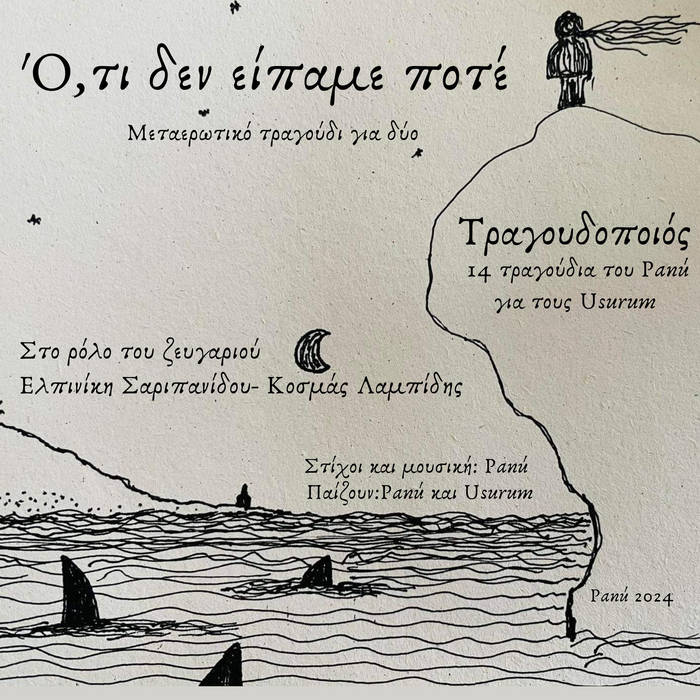 Ό,τι δεν είπαμε ποτέ
Μεταερωτικό τραγούδι για δύο
Τραγουδοποιός
14 τραγούδια του Ραπύ
για τους Usurum
Στο ρόλο του ζευγαριού
Ελπινίκη Σαριπανίδου- Κοσμάς Λαμπίδης
Στίχοι και μουσική: Ραπύ
Παίζουν:Ραπύ και Usurum
Ραπύ 2024